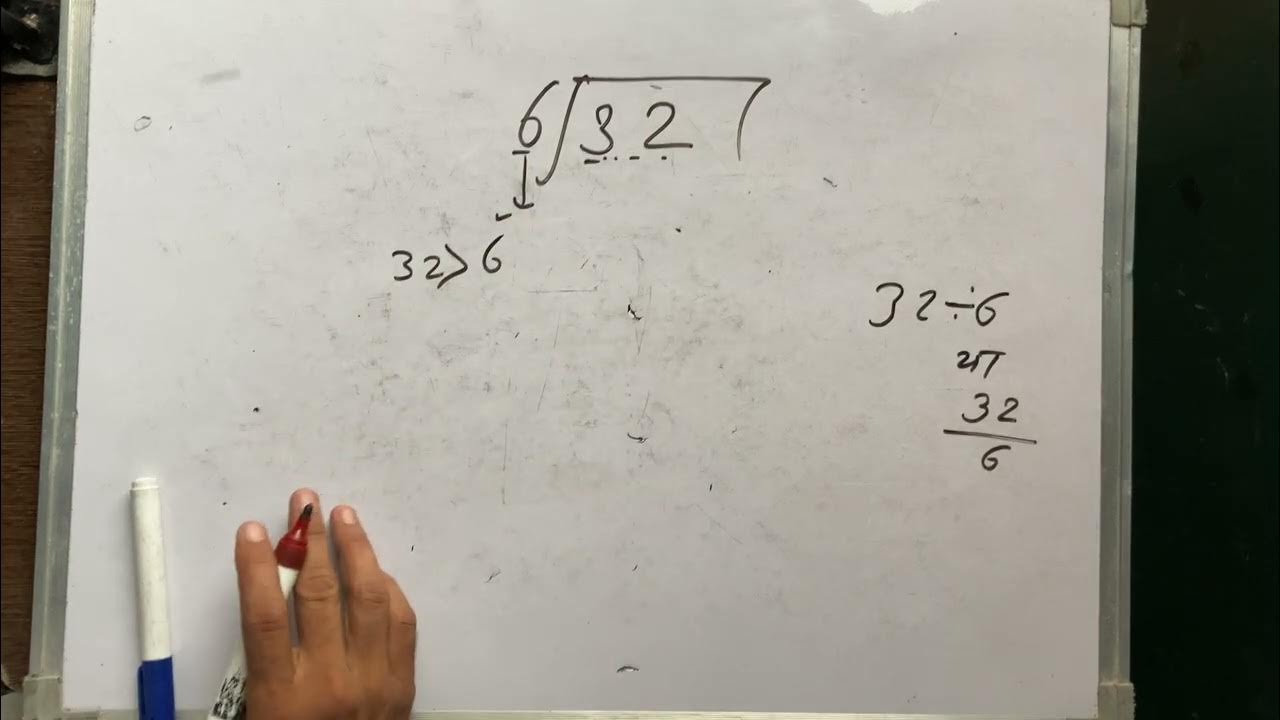 6 32
32>6
32÷6
32
6